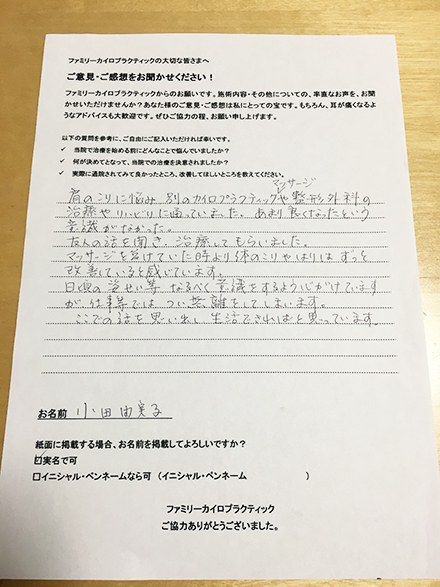 ファミリーカイロプラクティックの大切な皆さまへ
ご意見・ご感想をお聞かせください！
ファミリーカイロプラクティックからのお願いです。施術内容・その他についての、率直なお声を、お聞
かせいただけませんか？あなた様のご意見・ご感想は私にとっての宝です。もちろん、耳が痛くなるよう
なアドバイスも大歓迎です。ぜひご協力の程、お願い申し上げます。
以下の質問を参考に、ご自由にご記入いただければ幸いです。
✓ 当院で治療をする前にどんなことで悩んでいましたか？
✓ 何が決めてとなって、当院での治療を決意されましたか？
✓ 実際に通院されてみて良かったところ、改善してほしいところを教えてください。
マッサージ
肩のこりに悩み 別のカイロプラクティックや整形外科の
治療やリハビリに通っていました。あまり良くなったという
意識がなかった。
友人の話を聞き、治療してもらいました。
マッサージを受けていた時より体のこりやはりはずっと
改善していると感じています。
日頃の姿せい等 なるべく意識をするよう心がけています
が 仕事等では つい無理をしてしまいます。
ここでの話を思い出し 生活できればと思っています。
お名前 小田由実子
紙面に掲載する場合、お名前を掲載してよろしいですか？
☑実名で可
□イニシャル・ペンネームなら可 （イニシャル・ペンネーム ）
ファミリーカイロプラクティック
ご協力ありがとうございました。